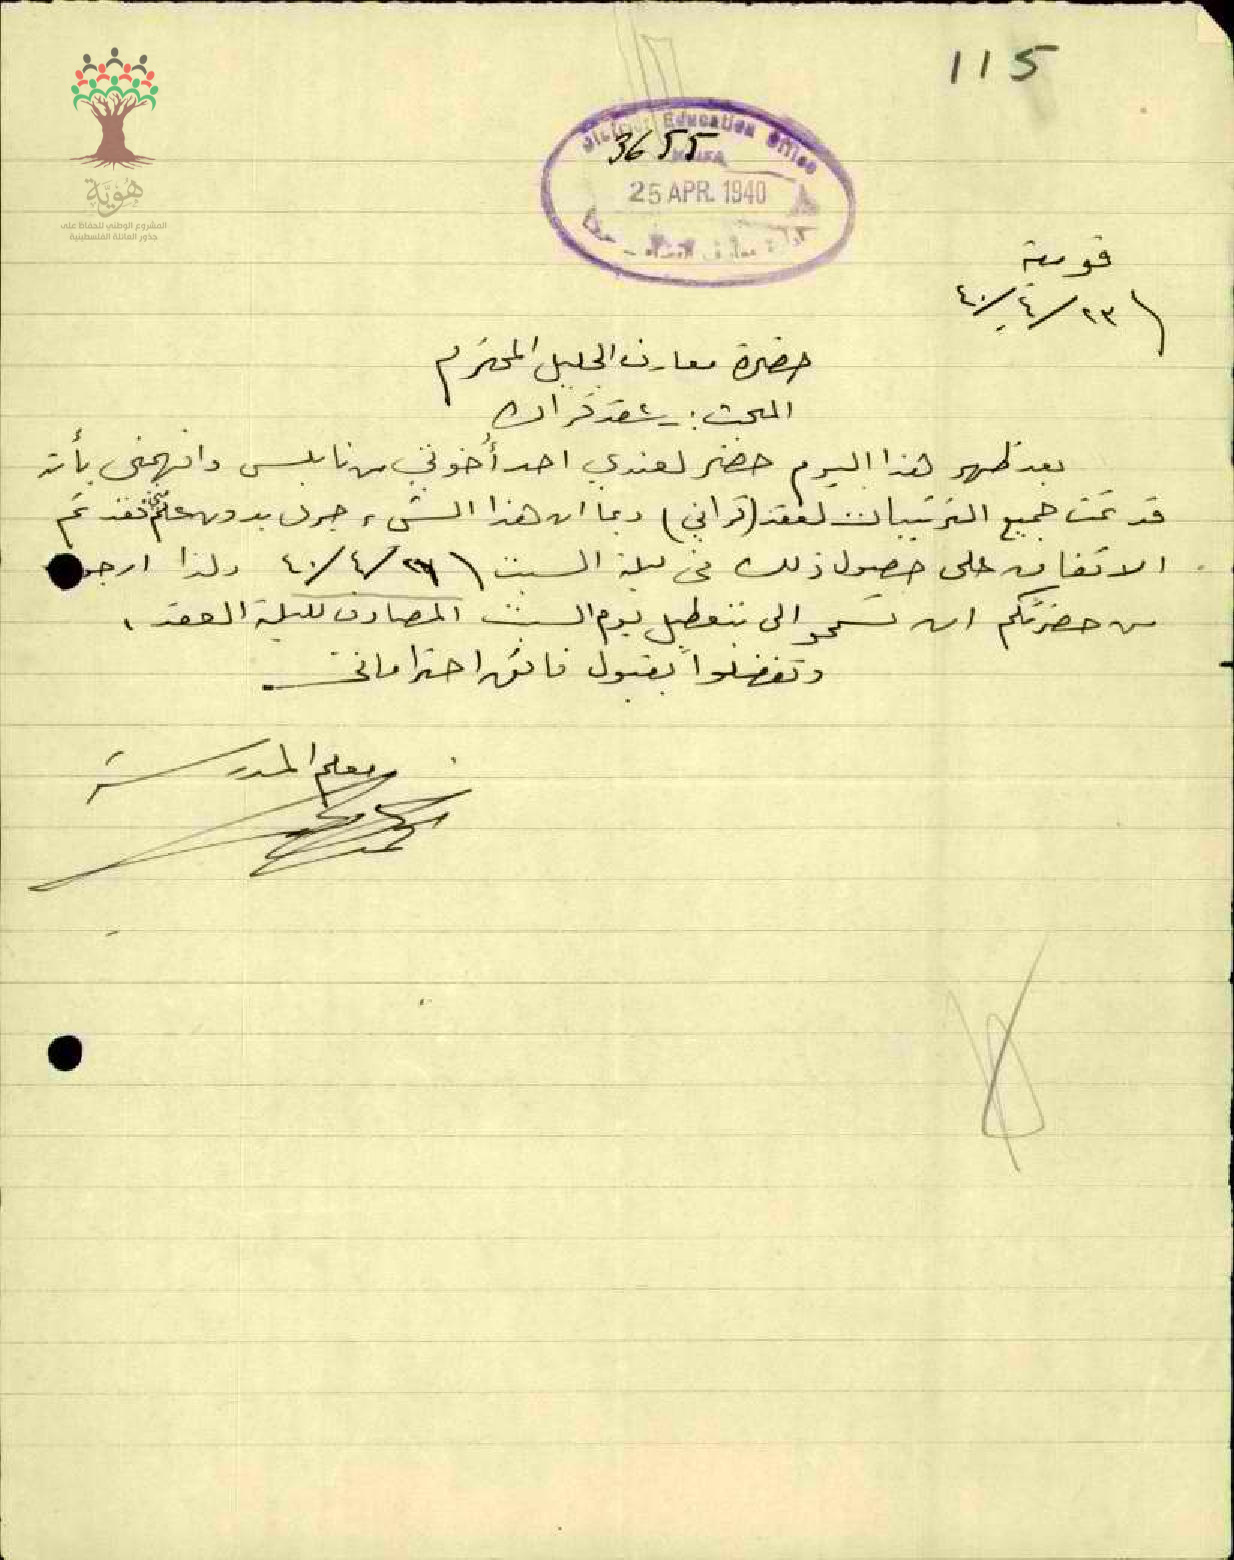 115
District Education Office
3655
25 APR. 1940
هُويَّة
المشروع الوطني للحفاظ على
جذور العائلة الفلسطينية
قومية
٢٣/٤/٤٠
حضرة معارف الجليل المحترم
البحث :ـ عقد قران
بعد ظهر هذا اليوم حضر لعندي احد أخوتي من نابلس وافهمني بأنه
قد تمت جميع الترتيبات لعقد (قراني) وبما ان هذا الشيء جرى بدون علم فقد تم
الاتفاق على حصول ذلك في ليلة السبت ٤/٤٠/ ولذا ارجو
من حضرتكم ان تسمحوا الي بتعطيل يوم السبت المصادف لليلة العقد .
وتفضلوا بقبول فائق احتراماتي .
معلم المدرسة